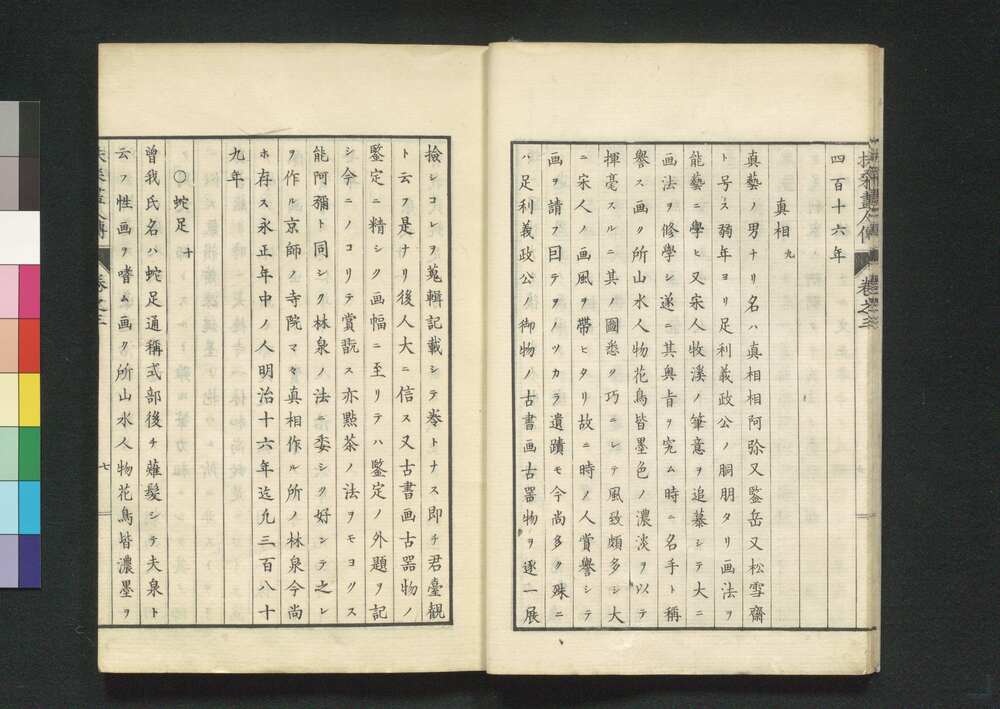 扶桑畫人傳 卷之三
四百十六年
真相 九
真藝ノ男ナリ名ハ真相相阿弥又鑑岳又松雪齋
ト号ス弱年ヨリ足利義政公ノ胴朋タリ画法ヲ
能藝ニ學ヒ又宋人牧溪ノ筆意ヲ追慕シテ大ニ
画法ヲ修學シ遂ニ其奥旨ヲ究ム時ニ名手ト稱
譽ス画ク所山水人物花鳥皆墨色ノ濃淡ヲ以テ
揮毫スルニ其ノ圖悉ク巧ニシテ風致頗多シ大
ニ宋人ノ画風ヲ帶ヒタリ故ニ時ノ人賞譽シテ
画ヲ請フ囙テヲノツカラ遺蹟モ今尚多ク殊ニ
ハ足利義政公ノ御物ノ古書画古器物ヲ逐一展
撿シコレヲ蒐輯記載シテ巻トナス即チ君臺観
ト云フ是ナリ後人大ニ信ス又古書画古器物ノ
鑒定ニ精シク画幅ニ至リテハ鑒定ノ外題ヲ記
シ今ニノコリテ賞翫ス亦點茶ノ法ヲモヨクス
能阿彌ト同シク林泉ノ法ニ委シク好ンテ之レ
ヲ作ル京師ノ寺院マヽ真相作ル所ノ林泉今尚
ホ存ス永正年中ノ人明治十六年迄九三百八十
九年
〇蛇足 十
曽我氏名ハ蛇足通稱式部後チ薙髮シテ夫泉ト
云フ性画ヲ嗜ム画ク所山水人物花鳥皆濃墨ヲ
扶桑畫人傳 卷之三 七